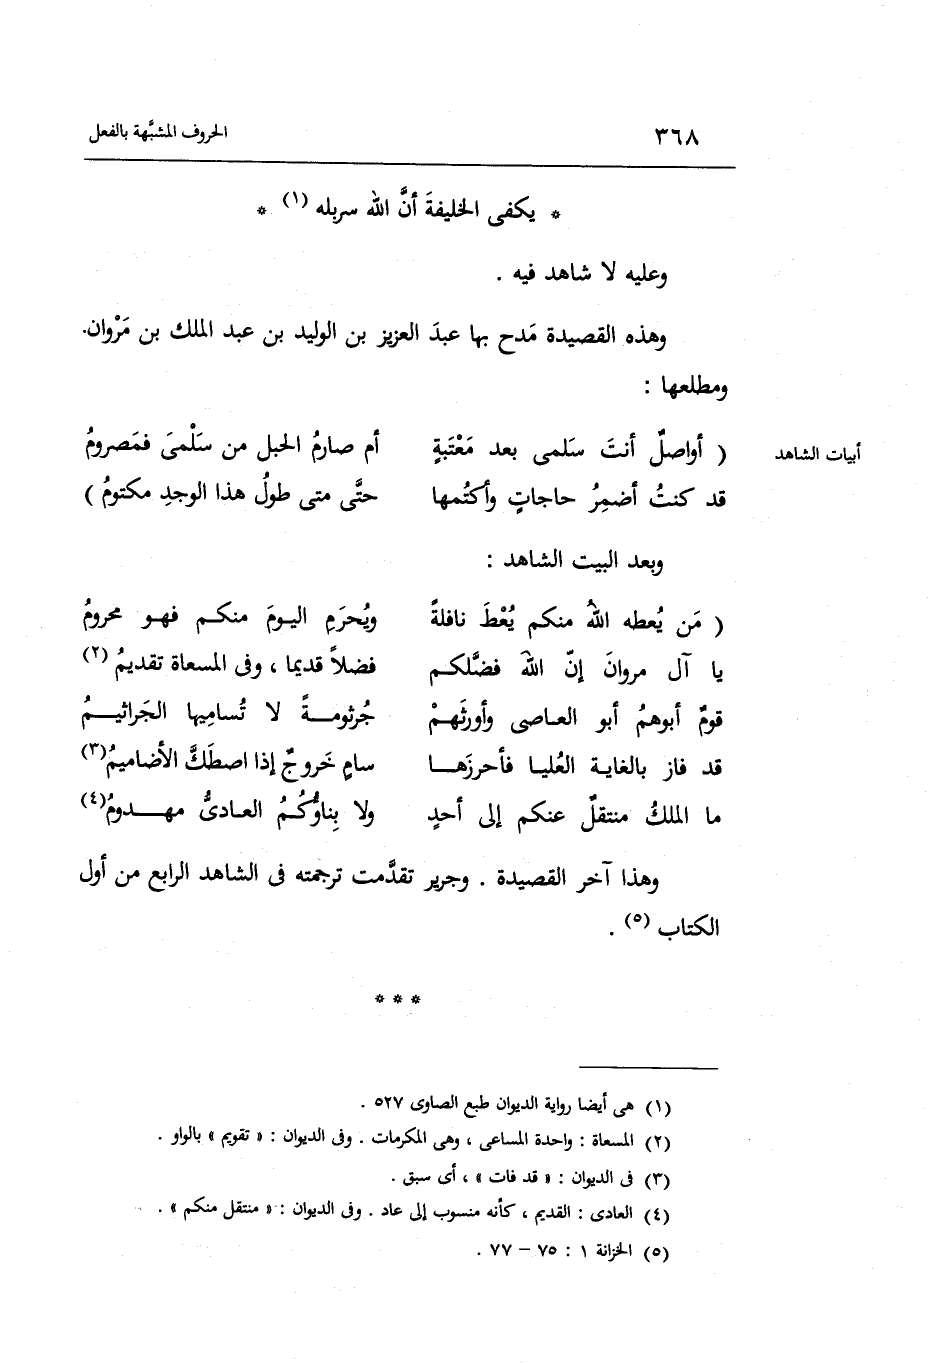 ٣٦٨ الحروف المشبَّهة بالفعل
* يكفى الخليفةَ أنَّ الله سربله (١) *
وعليه لا شاهد فيه .
وهذه القصيدة مَدح بها عبدَ العزيز بن الوليد بن عبد الملك بن مَرْوان.
ومطلعها :
أبيات الشاهد
( أواصلٌ أنتَ سَلمى بعد مَعْتَبةٍ أم صارمُ الحبل من سَلْمىَ فمَصرومُ
قد كنتُ أضمِرُ حاجاتٍ وأكتُمها حتَّى متى طولُ هذا الوجدِ مكتومُ )
وبعد البيت الشاهد :
( مَن يُعطه اللهُ منكم يُعْطَ نافلةً ويُحرَمِ اليـومَ منكـم فهـو محرومُ
يا آل مروانَ إنّ اللهَ فضَّلكـم فضلاً قديما ، وفى المسعاة تقديمُ (٢)
قومٌ أبوهمُ أبو العـاصى وأورثَهـمْ جُرثومـــةً لا تُسامِيها الجَراثيـــمُ
قد فاز بالغايـة العُليـا فأحرزَهـــا سامٍ خَروجٌ إذا اصطَكَّ الأضاميمُ (٣)
ما الملكُ منتقلٌ عنكم إلى أحدٍ ولا بِناؤكُـمُ العـادىُّ مهـــدومُ (٤)
وهذا آخر القصيدة . وجرير تقدَّمت ترجمته فى الشاهد الرابع من أول
الكتاب (٥) .
* * *
(١) هى أيضا رواية الديوان طبع الصاوى ٥٢٧ .
(٢) المسعاة : واحدة المساعى ، وهى المكرمات . وفى الديوان : « تقويم » بالواو .
(٣) فى الديوان : « قد فات » ، أى سبق .
(٤) العادى : القديم ، كأنه منسوب إلى عاد . وفى الديوان : « منتقل منكم » .
(٥) الخزانة ١ : ٧٥ – ٧٧ .